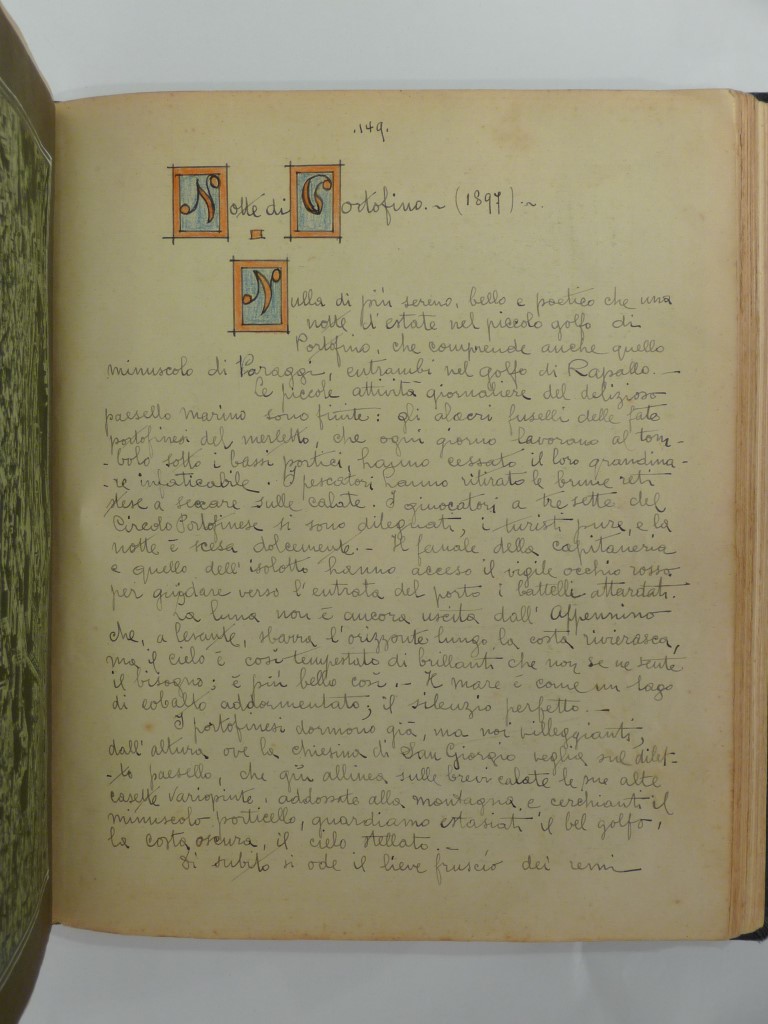 .149.
Notte di Portofino. ~ (1897) ~.
Nulla di più sereno, bello e poetico che una
notte d'estate nel piccolo golfo di
Portofino, che comprende anche quello
minuscolo di Paraggi, entrambi nel golfo di Rapallo. —
Le piccole attività giornaliere del delizioso
paesello marino sono finite: gli alacri fuselli delle fate
portofinesi del merletto, che ogni giorno lavorano al tom-
-bolo sotto i bassi portici, hanno cessato il loro grandina-
-re infaticabile. I pescatori hanno ritirato le brune reti
stese a seccare sulle calate. I giuocatori a tresette del
Circolo Portofinese si sono dileguati, i turisti pure, e la
notte è scesa dolcemente. — Il fanale della capitaneria
e quello dell'isolotto hanno acceso il vigile occhio rosso
per guidare verso l'entrata del porto i battelli attardati.
La luna non è ancora uscita dall'Appennino
che, a levante, sbarra l'orizzonte lungo la costa rivierasca,
ma il cielo è così tempestato di brillanti che non se ne sente
il bisogno; è più bello così. — Il mare è come un lago
di cobalto addormentato; il silenzio perfetto. —
I portofinesi dormono già, ma noi villeggianti,
dall'altura ove la chiesina di San Giorgio veglia sul dilet-
-to paesello, che giù allinea sulle brevi calate le sue alte
casette variopinte, addossate alla montagna e cerchianti il
minuscolo porticello, guardiamo estasiati il bel golfo,
la costa oscura, il cielo stellato. —
Di subito si ode il lieve fruscío dei remi